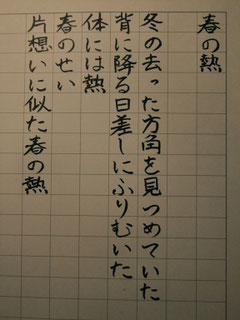 春の熱
冬の去った方角を見つめていた
背に降る日差しにふりむいた
体には熱
春のせい
片想いに似た春の熱